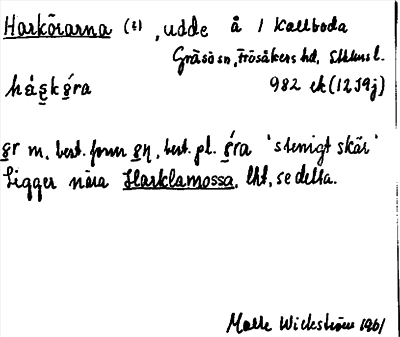 Harkörarna (t), udde å / Kallboda
Gräsö sn, Frösåkers hd, Sthlms l.
982 ek (12 I 9 j)
hárkǿra
ør m, best. form øn, best. pl. ǿra 'stenigt skär'
Ligger nära Harklamossa, lht, se detta.
Malte Wickström 1961